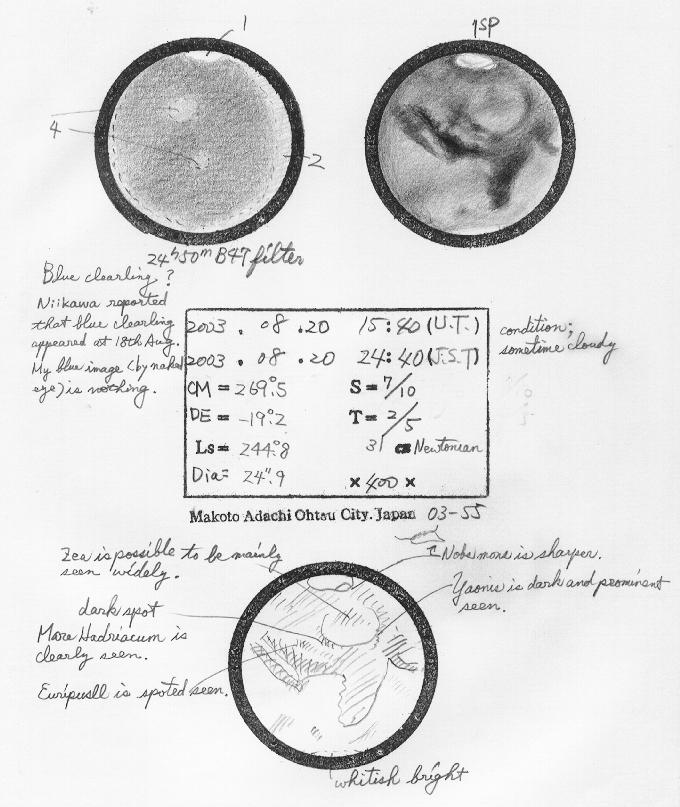 1
1SP
4
2
24h50m B47 filter
Blue clearling ?
Niikawa reported
that blue clearling
appeared at 18th Aug.
My blue image (by naked
eye) is nothing.
2003 . 08 .20 15:40 (U.T.)
2003 . 08 .20 24:40 (J.S.T)
CM = 269°.5 S = 7/10
DE = -19°.2 T = 2/5
Ls = 244°.8 31 cm Newtonian
Dia= 24".9 × 400 ×
condition;
sometime cloudy
Makoto Adachi Ohtsu City. Japan 03-55
Zea is possible to be mainly
seen widely.
Nobs mons is sharper.
Yaonis is dark and prominent
seen.
dark spot
Mare Hadriacum is
clearly seen.
EuripusII is spoted seen.
whitish bright